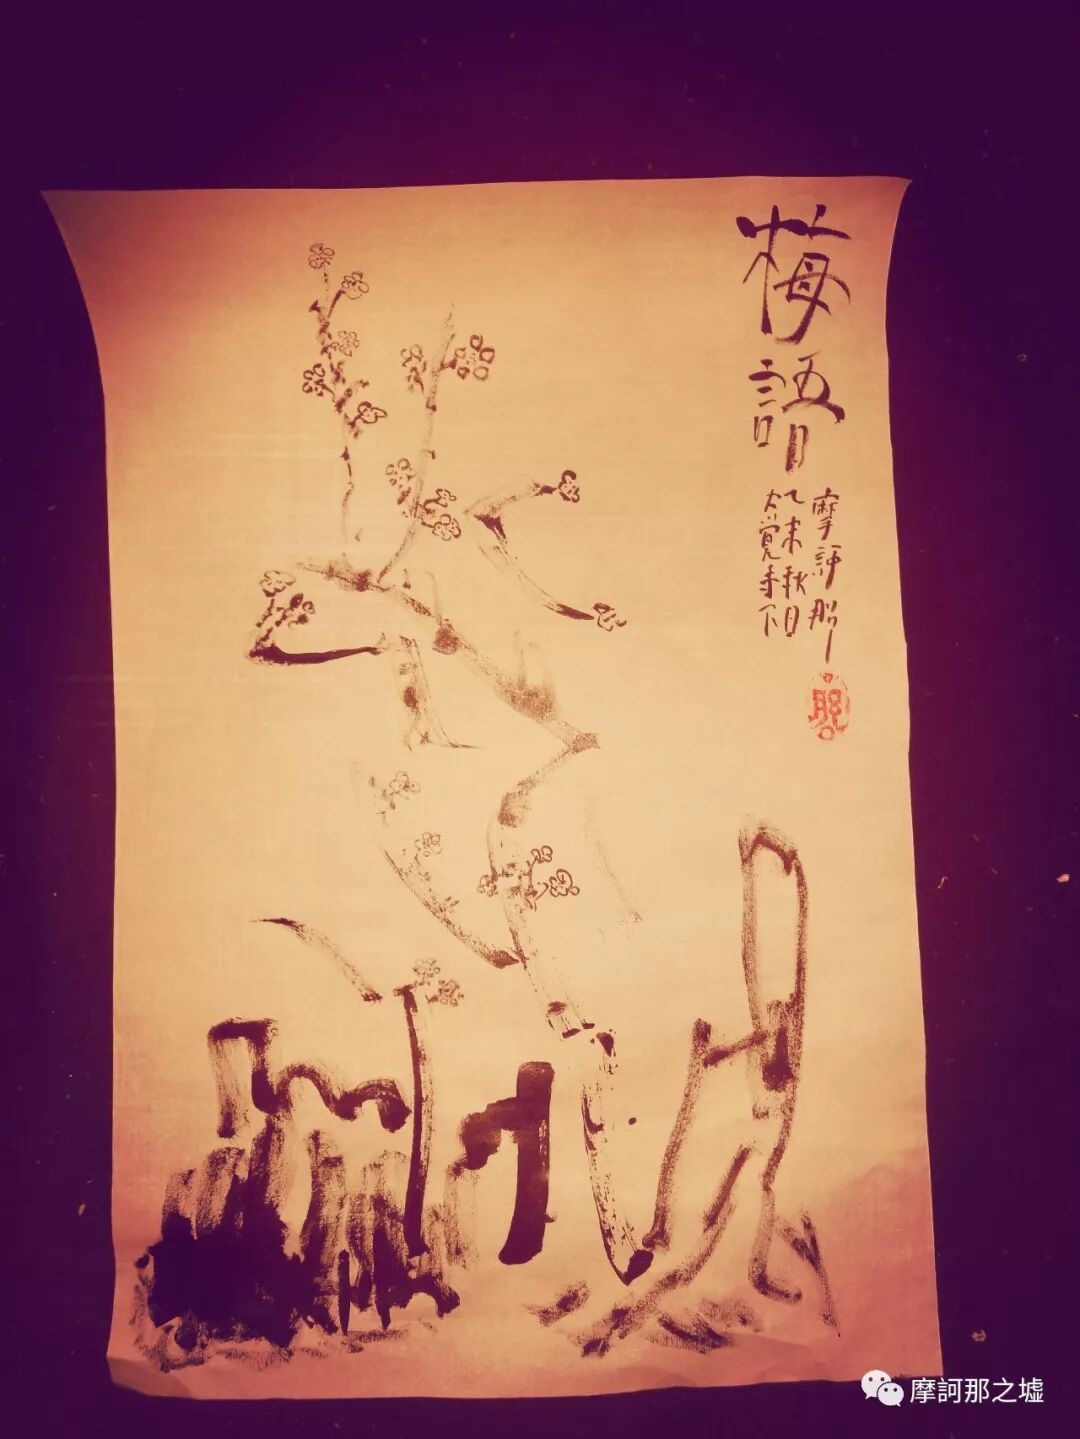 梅語
摩訶那
乙未秋日
大覺寺下
摩訶那之墟